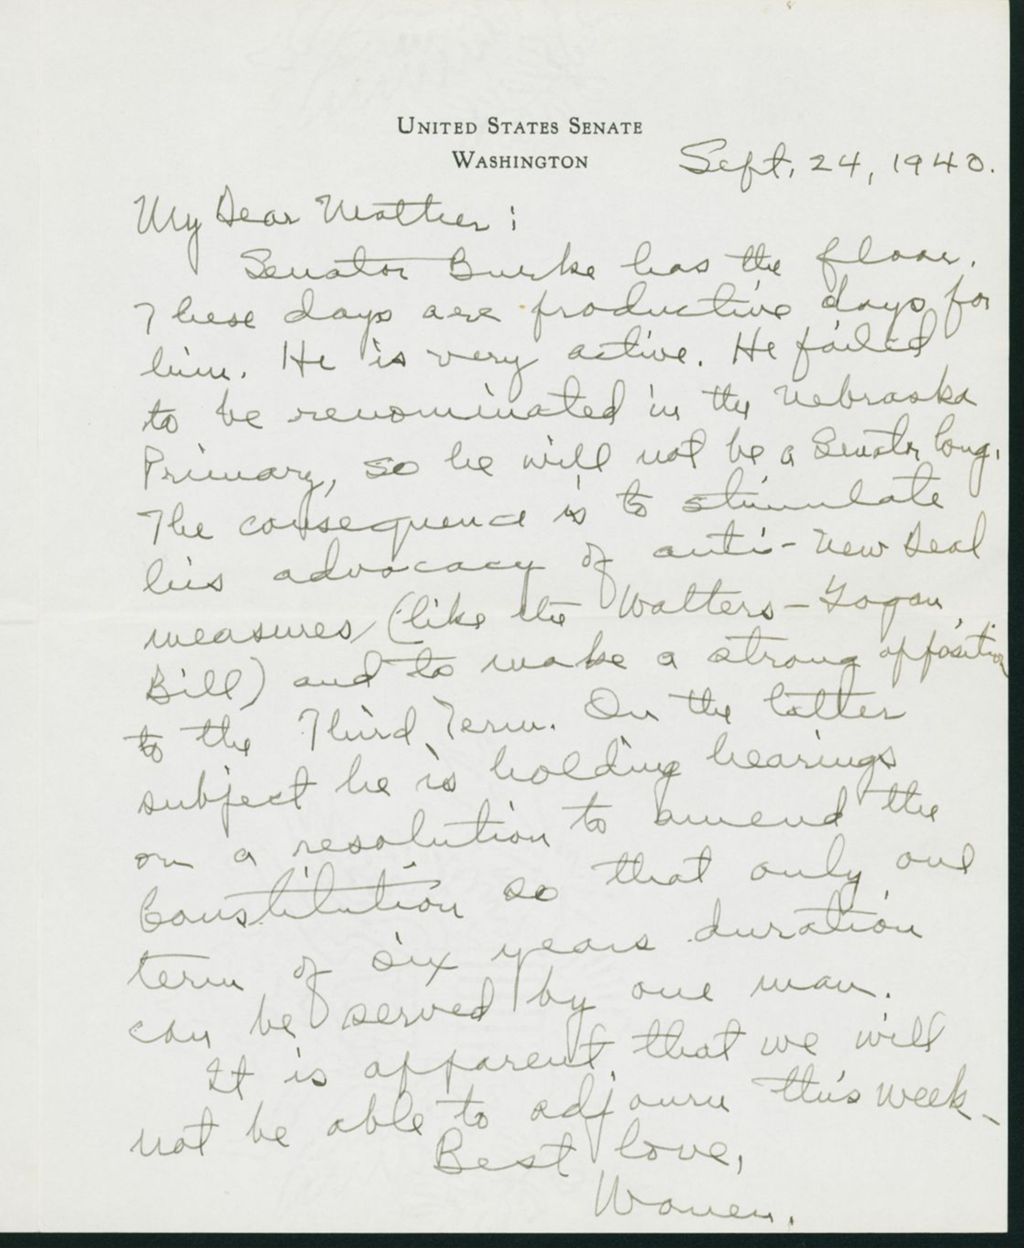 UNITED STATES SENATE
WASHINGTON
Sept. 24, 1940.
My Dear Mother:
Senator Burke has the floor.
These days are productive days for
him. He is very active. He failed
to be renominated in the Nebraska
Primary, so he will not be a Senator long.
The consequence is to stimulate
his advocacy of anti-New Deal
measures (like the Walters-Logan
Bill) and to make a strong opposition
to the Third Term. On the latter
subject he is holding hearings
on a resolution to amend the
Constitution so that only one
term of six years duration
can be served by one man.
It is apparent that we will
not be able to adjourn this week-
Best love,
Warren.